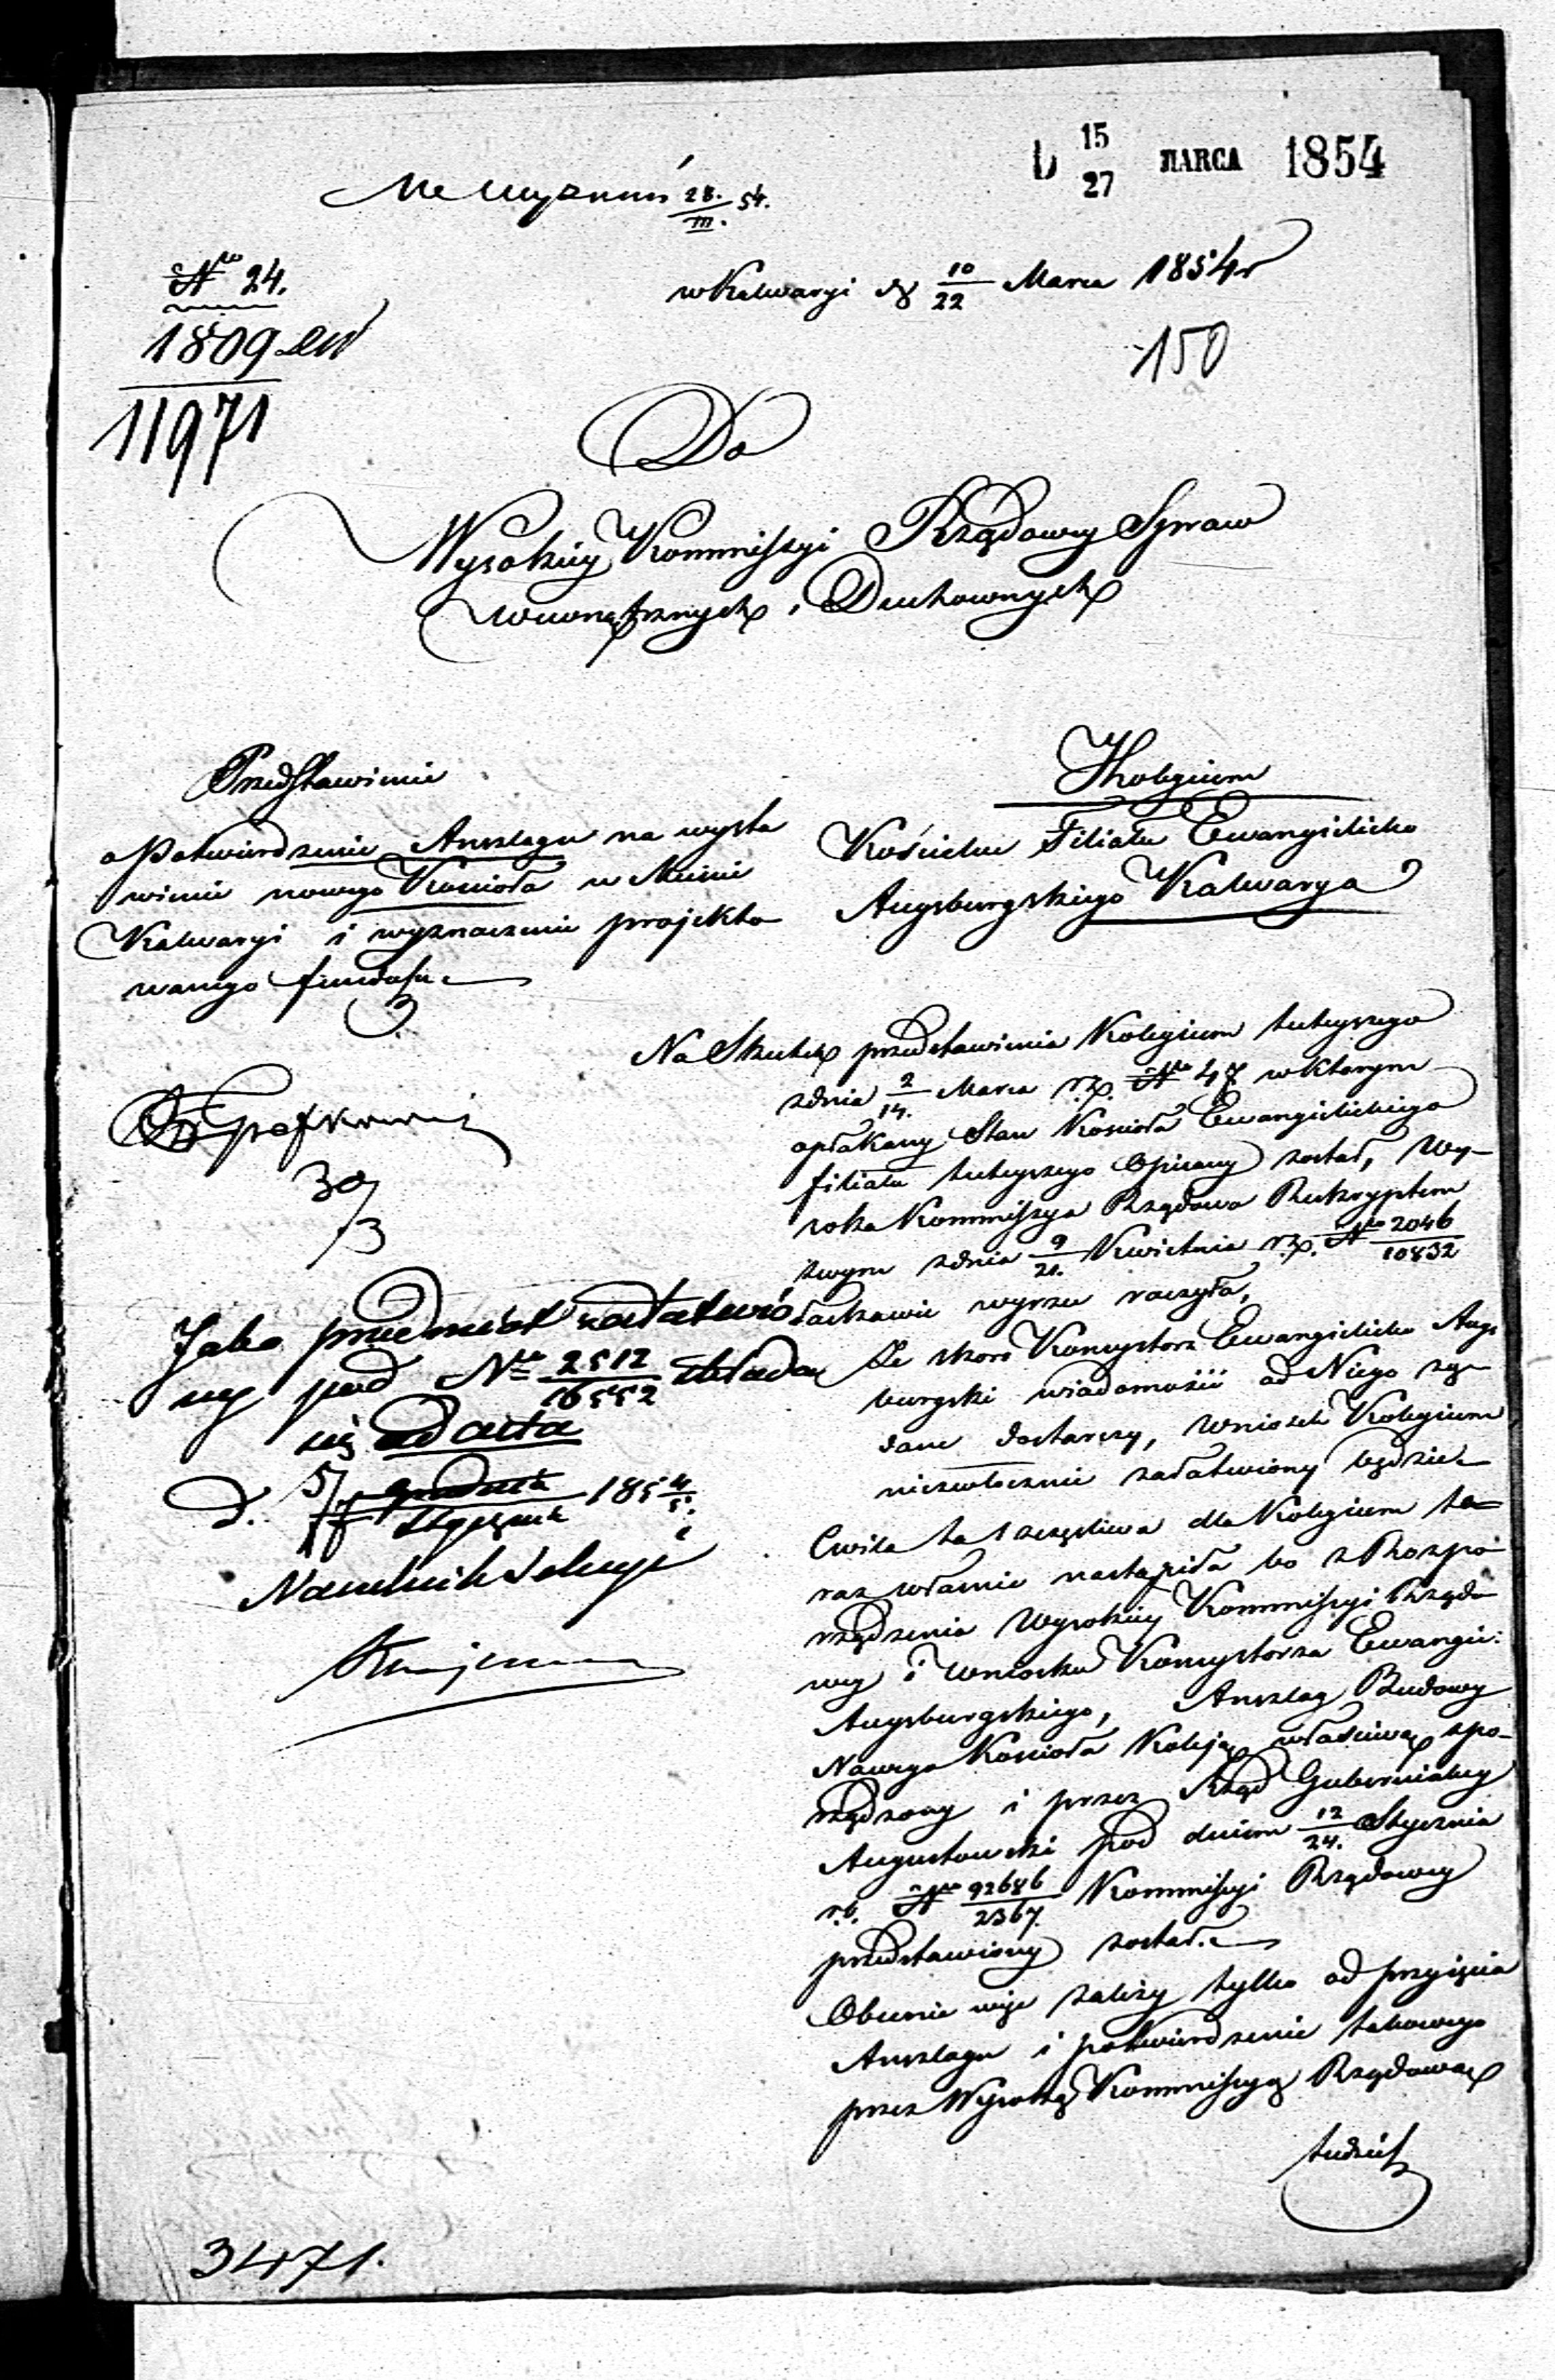 D 15/27 MARCA 1854
28./III. 54.
No 24.
w Kalwaryi d 10/22 Marca 1854 r
1809
150
11971
Do
Wysokiey Kommissyi Rządowey Spraw
Wewnętrznych i Duchownych
Przedstawienie
o Potwierdzenie Anszlagu na wysta
wienie nowego Kościoła w Mieście
Kalwaryi i wyznaczenie projekto
wanego funduszu
Kolegium
Kościoła Filiału Ewangielicko
Augsburgskiego Kalwarya
30/3
Jako przedmiot załatwio
ny pod No 2512/16552 składa
się ad acta
D. 5/17 Grudnia/Stycznia 1854/5
Naczelnik Sekcyi
Na Skutek przedstawienia Kolegium tuteyszego
z dnia 2/14. Marca r.z. No 47 w którym
opłakany Stan Kościoła Ewangielickiego
filiału tuteyszego Opisany został, Wy-
soka Kommissya Rządowa Reskryptem
swym z dnia 9/21. Kwietnia r.z. No 2046/10832
łaskawie wyrzec raczyła,
Że skoro Konsystorz Ewangielicko Augs
burgski wiadomości od Niego żą-
dane dostarczy, wniosek Kolegium
niezwłocznie załatwiony będzie.
Cwila ta szczęśliwa dla Kolegium te-
raz właśnie nastąpiła bo z Rozpo-
rządzenia Wysokiey Kommissyi Rządo
wey i Wniosku Konsystorza Ewangie:
Augsburgskiego, Anszlag Budowy
Nowego Kościoła Koleją właściwą spo-
rządzony i przez Rząd Gubernialny
Augustowski pod dniem 12/24. Stycznia
r.b. No 92686/2367. Kommissyi Rządowey
przedstawiony został.
Obecnie więc zależy tylko od przyięcia
Anszlagu i potwierdzenie takowego
przez Wysoką Kommissyą Rządową
tudzież
3471.